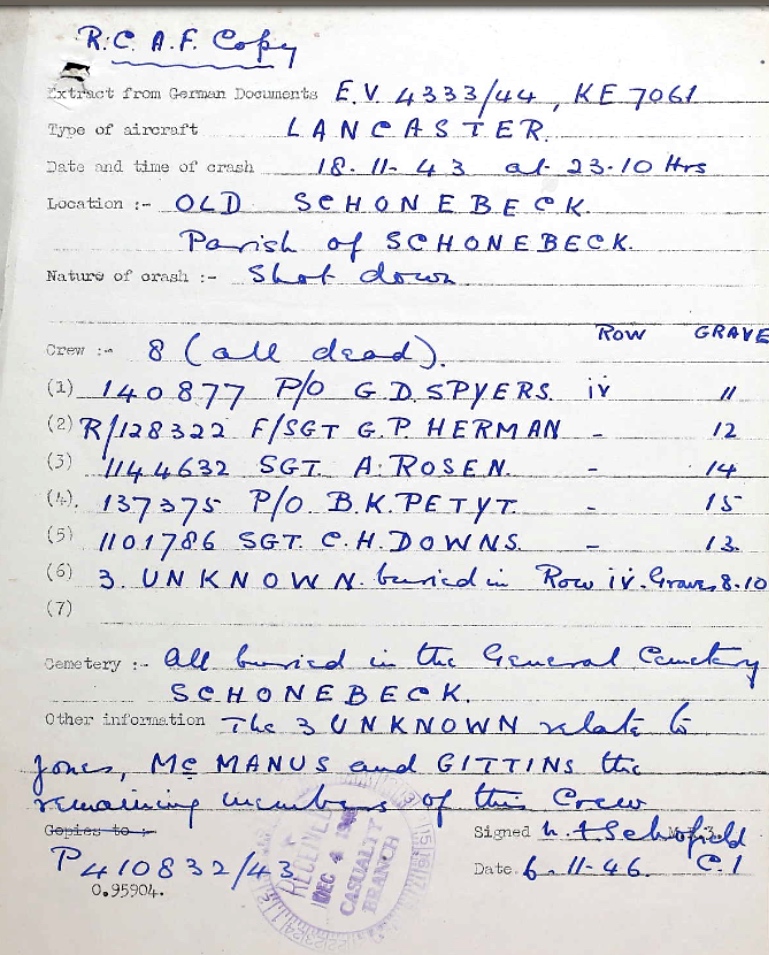 R.C.A.F. Copy
Extract from German Documents E.V. 4333/44, KE 7061
Type of aircraft LANCASTER.
Date and time of crash 18.11.43 at 23.10 Hrs
Location :- OLD SCHONEBECK.
Parish of SCHONEBECK.
Nature of crash :- Shot down
ROW GRAVE
Crew :- 8 (all dead).
(1) 140877 P/O G.D. SPYERS. iv 11
(2) R/128322 F/SGT G.P. HERMAN - 12
(3) 1144632 SGT. A. ROSEN. - 14
(4). 137375 P/O. B.K. PETYT. - 15
(5) 1101786 SGT. C.H. DOWNS. - 13.
(6) 3. UNKNOWN. buried in Row iv. Graves 8.10
(7)
Cemetery :- All buried in the General Cemetery
SCHONEBECK.
Other information The 3 UNKNOWN relate to
Jones, McMANUS and GITTINS the
remaining members of this Crew
Copies to :- Signed Schofield
P410832/43 Date. 6.11.46. C.1
0.95904.
RECEIVED
DEC 4
CASUALTY
BRANCH